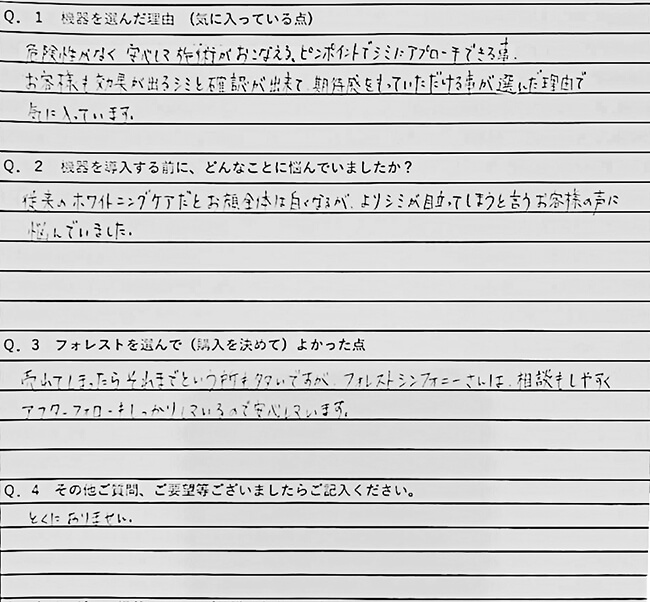 Q．1　機器を選んだ理由　（気に入っている点）
危険性がなく安心して施術がおこなえる、ピンポイントでシミにアプローチできる事。
お客様も効果が出るシミと確認が出来て、期待感をもっていただける事が選んだ理由で
気に入っています。
Q．2　機器を導入する前に、どんなことに悩んでいましたか？
従来のホワイトニングケアだとお顔全体は白くなるが、よりシミが目立ってしまうと言うお客様の声に
悩んでいました。
Q．3　フォレストを選んで（購入を決めて）よかった点
売れてしまったらそれまでという所も多いですが、フォレストシンフォニーさんは、相談もしやすく
アフターフォローもしっかりしているので安心しています。
Q．4　その他ご質問、ご要望等ございましたらご記入ください。
とくにありません。